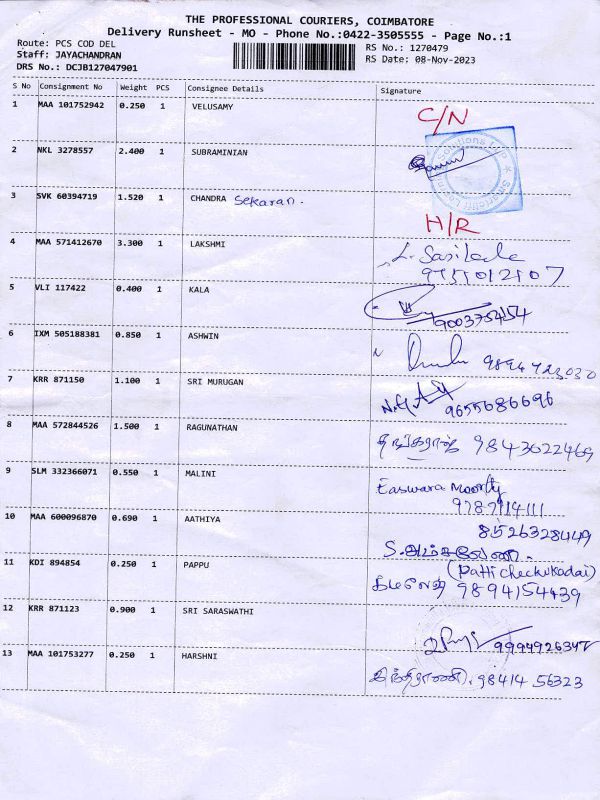 THE PROFESSIONAL COURIERS, COIMBATORE
Delivery Runsheet - MO - Phone No.:0422-3505555 - Page No.:1
Route: PCS COD DEL
RS No.: 1270479
Staff: JAYACHANDRAN
RS Date: 08-Nov-2023
DRS No.: DCJB127047901
S No Consignment No Weight PCS Consignee Details Signature
1 MAA 101752942 0.250 1 VELUSAMY C/N
2 NKL 3278557 2.400 1 SUBRAMINIAN
3 SVK 60394719 1.520 1 CHANDRA Sekaran. H/R
4 MAA 571412670 3.300 1 LAKSHMI
5 VLI 117422 0.400 1 KALA
6 IXM 505188381 0.850 1 ASHWIN
9894723030
7 KRR 871150 1.100 1 SRI MURUGAN
9655686696
8 MAA 572844526 1.500 1 RAGUNATHAN
9843022469
9 SLM 332366071 0.550 1 MALINI
Easwara Moorthy
10 MAA 600096870 0.690 1 AATHIYA
8526328449
11 KDI 894854 0.250 1 PAPPU
9894154439
12 KRR 871123 0.900 1 SRI SARASWATHI
13 MAA 101753277 0.250 1 HARSHNI
98414 56323